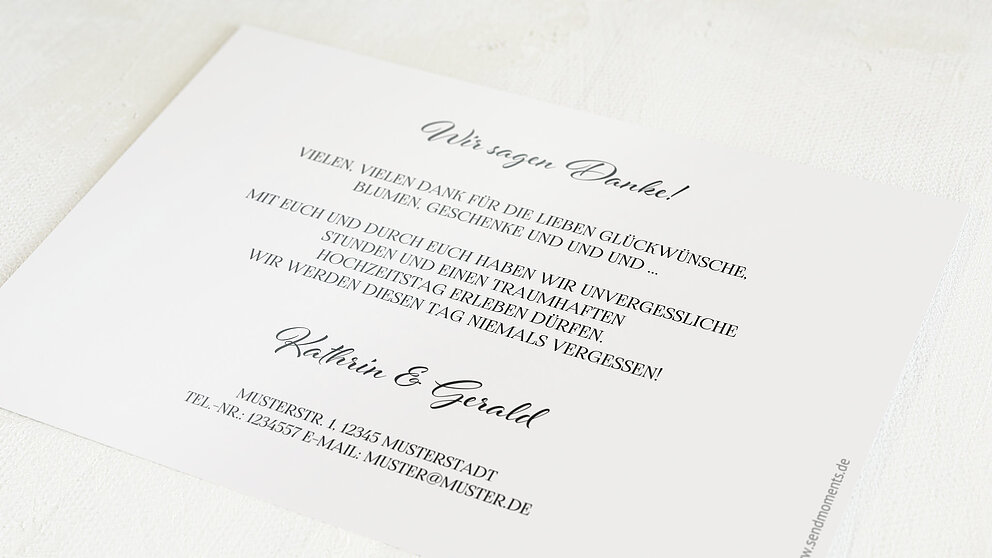 Wir sagen Danke!
VIELEN, VIELEN DANK FÜR DIE LIEBEN GLÜCKWÜNSCHE,
BLUMEN, GESCHENKE UND UND UND ...
MIT EUCH UND DURCH EUCH HABEN WIR UNVERGESSLICHE
STUNDEN UND EINEN TRAUMHAFTEN
HOCHZEITSTAG ERLEBEN DÜRFEN.
WIR WERDEN DIESEN TAG NIEMALS VERGESSEN!
Kathrin & Gerald
MUSTERSTR. 1, 12345 MUSTERSTADT
TEL.-NR.: 1234557 E-MAIL: MUSTER@MUSTER.DE
w.sendmoments.de